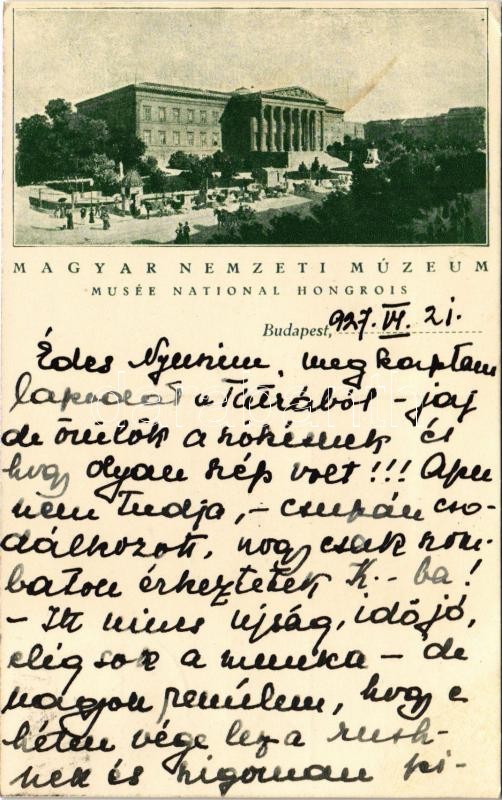 MAGYAR NEMZETI MÚZEUM
MUSÉE NATIONAL HONGROIS
Budapest, 927. VI. 21.
Édes Nyuszim, megkaptam
lapodat a Tátrából - jaj
de örülök a szökésnek és
hogy olyan szép volt!!! Apu
nem tudja, - csupán cso-
dálkozott, hogy csak szom-
baton érkeztetek K.-ba!
- Itt nincs újság, idő jó,
elég sok a munka - de
nagyon remélem, hogy e
héten vége lesz a rush-
nek és szigorúan pi-